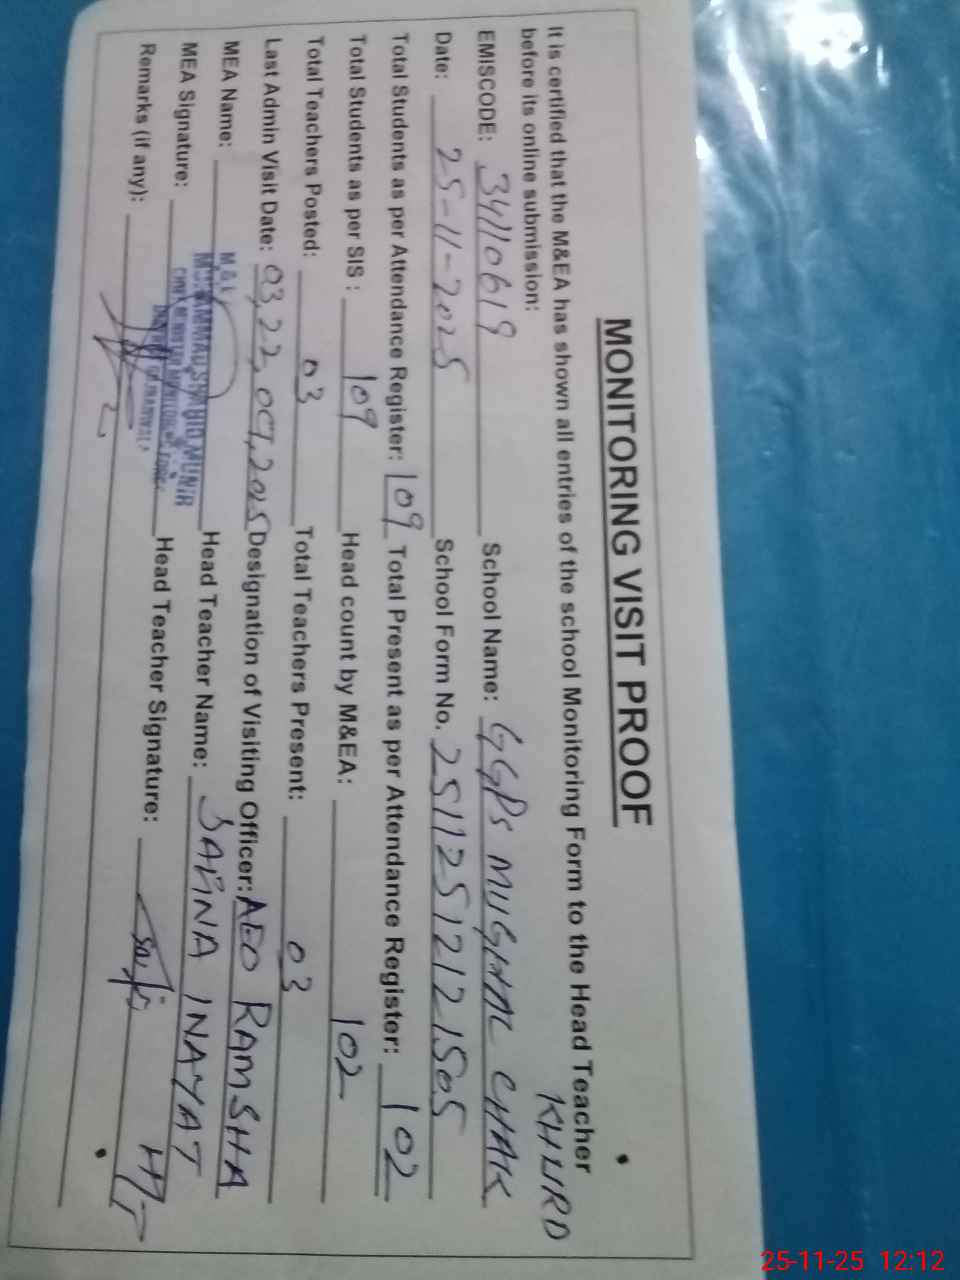 MONITORING VISIT PROOF
It is certified that the M&EA has shown all entries of the school Monitoring Form to the Head Teacher
before its online submission:
EMISCODE: 34110619 School Name: GGPS MUGHAL CHAK KHURD
Date: 25-11-2025 School Form No. 25112512121505
Total Students as per Attendance Register: 109 Total Present as per Attendance Register: 102
Total Students as per SIS : 109 Head count by M&EA: 102
Total Teachers Posted: 03 Total Teachers Present: 03
Last Admin Visit Date: 03, 22, 09, 2025 Designation of Visiting Officer: AEO RAMSHA
MEA Name: MUHAMMAD SHAHID MUNIR Head Teacher Name: SAHNA INAYAT
MEA Signature: Head Teacher Signature:
Remarks (if any):
25-11-25 12:12